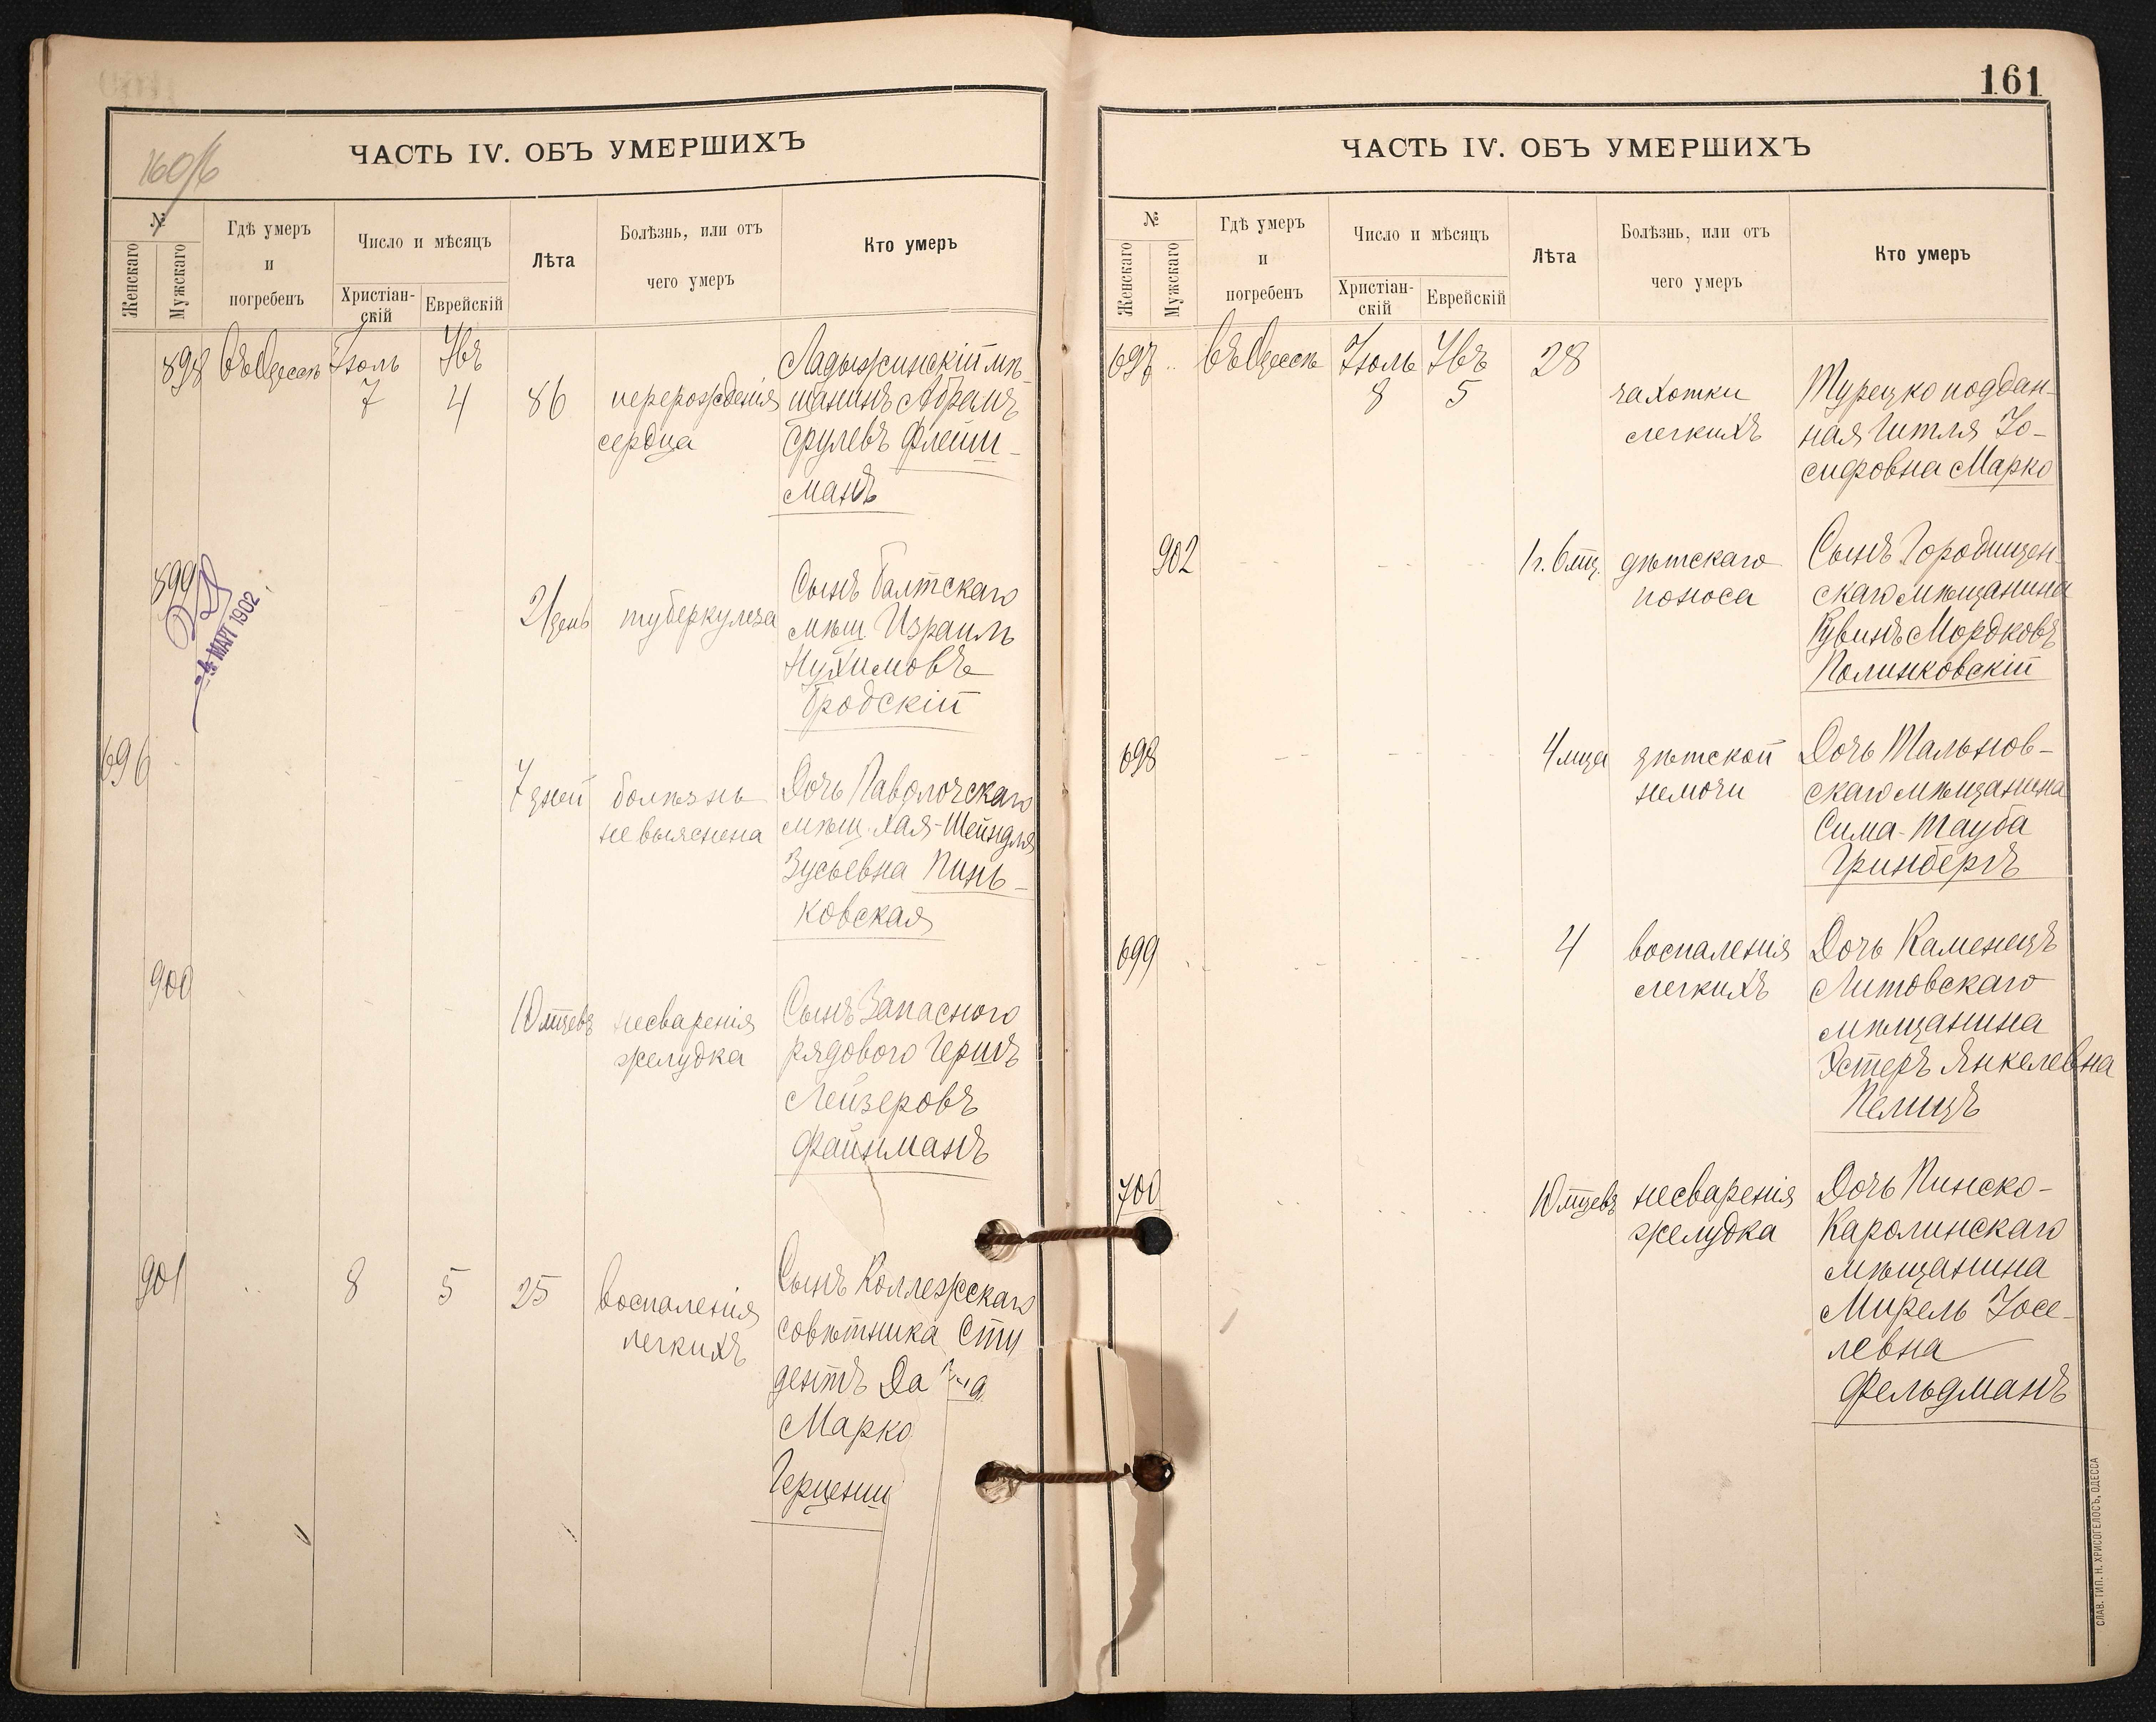 160/б
ЧАСТЬ IV. ОБЪ УМЕРШИХЪ
№
Женскаго
Мужскаго
Гдѣ умеръ
и
погребенъ
Число и мѣсяцъ
Христіан-
скій
Еврейскій
Лѣта
Болѣзнь, или отъ
чего умеръ
Кто умеръ
898 въ Одессѣ Іюль 7 Авъ 4 86
перерожденія
сердца
Ладыжинскій мѣ-
щанинъ Абрамъ
Срулевъ Флейш-
манъ
899
21 день туберкулеза
Сынъ Балтскаго
мѣщ Израиль
Нухимовъ
Бродскій
24 МАР 1902
696
7 дней болѣзнь
не выяснена
Дочь Паволочскаго
мѣщ. Хая-Шейндля
Зусьевна Пинь-
ковская
900
10 мцевъ несваренія
желудка
Сынъ Запасного
рядового Гершъ
Лейзеровъ
Файнманъ
901 8 5 25
воспаленія
легкихъ
Сынъ Коллежскаго
совѣтника Сту
дентъ
Марко
161
ЧАСТЬ IV. ОБЪ УМЕРШИХЪ
№
Женскаго
Мужскаго
Гдѣ умеръ
и
погребенъ
Число и мѣсяцъ
Христіан-
скій
Еврейскій
Лѣта
Болѣзнь, или отъ
чего умеръ
Кто умеръ
697 въ Одессѣ Іюль 8 Авъ 5 28
чахотки
легкихъ
Турецко поддан-
ная Гитля Іо-
сифовна Марко
902
1 г. 6 мц. дѣтскаго
поноса
Сынъ Городищен-
скаго мѣщанина
Рувинъ Мордковъ
Полинковскій
698
4 мца дѣтской
немочи
Дочь Тальнов-
скаго мѣщанина
Сима-Тауба
Гринбергъ
699
4 воспаленія
легкихъ
Дочь Каменецъ
Литовскаго
мѣщанина
Эстеръ Янкелевна
Пелицъ
700
10 мцевъ несваренія
желудка
Дочь Пинско-
Каролинскаго
мѣщанина
Мирель Іосе-
левна
Фельдманъ
СЛАВ. ТИП. Н. ХРИСОГЕЛОСЪ, ОДЕССА